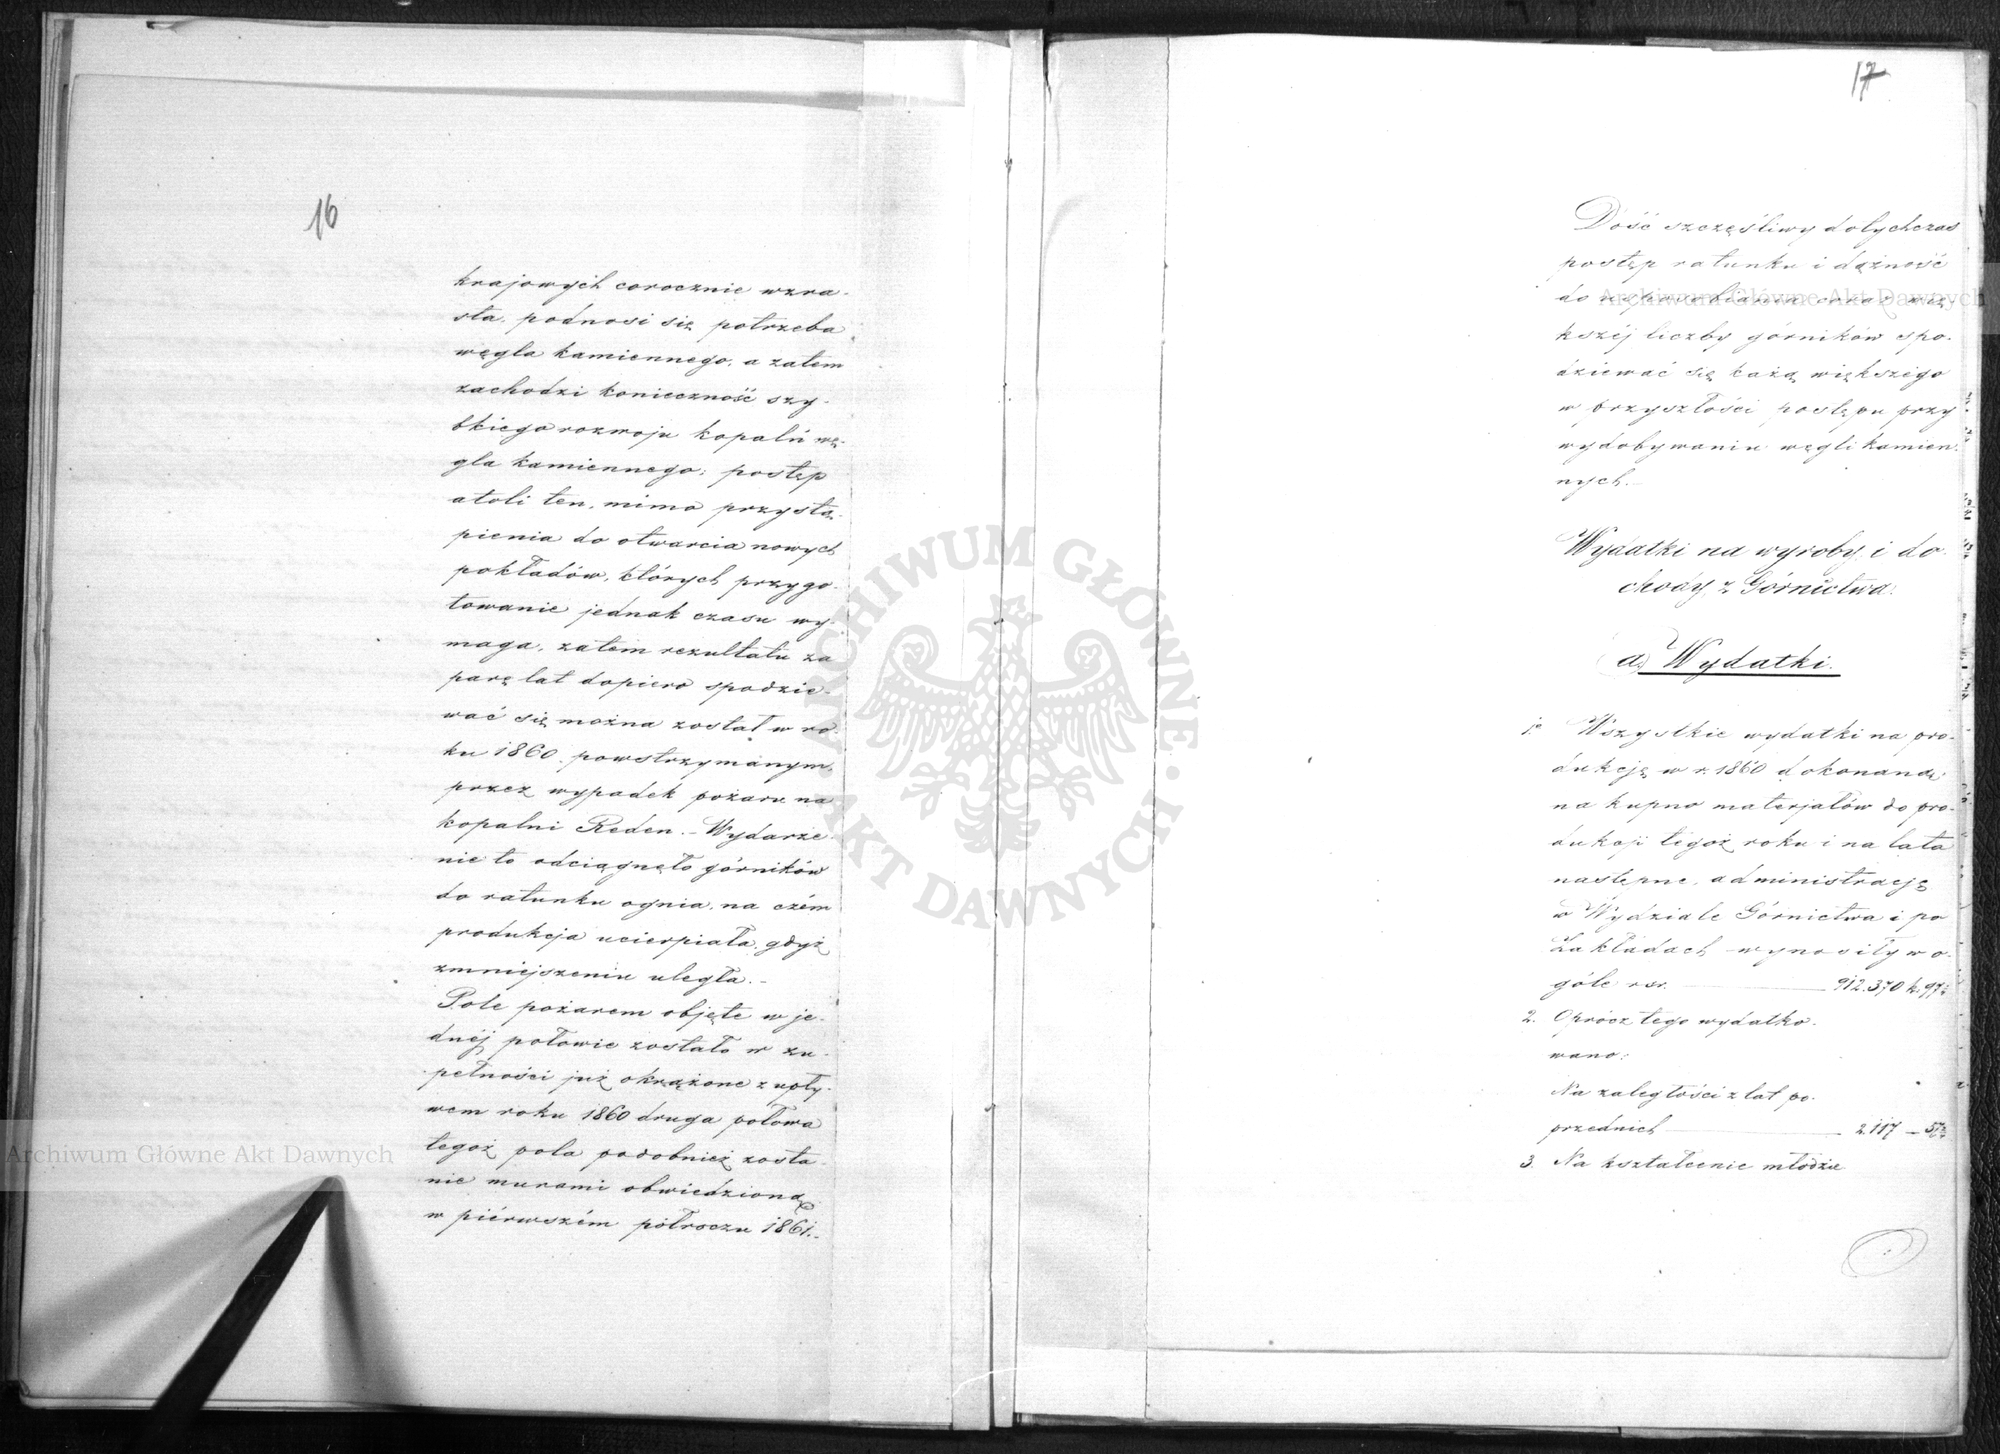 16
krajowych corocznie wzra-
sta, podnosi się potrzeba
węgla kamiennego, a zatem
zachodzi konieczność szy-
bkiego rozwoju kopalń wę-
gla kamiennego; postęp
atoli ten, mimo przystą-
pienia do otwarcia nowych
pokładów, których przygo-
towanie jednak czasu wy-
maga, zatem rezultatu za
parę lat dopiero spodzie-
wać się można został w ro-
ku 1860. powstrzymanym,
przez wypadek pożaru na
kopalni Reden. - Wydarze-
nie to odciągnęło górników
do ratunku ognia, na czém
produkcja ucierpiała, gdyż
zmniejszeniu uległa. -
Pole pożarem objęte w je-
dnéj połowie zostało w zu-
pełności już okrążone z upły-
wem roku 1860 druga połowa
tegoż pola podobnież zosta-
nie murami obwiedzioną
w piérwszém półroczu 1861. -
17
Dość szczęśliwy dotychczas
postęp ratunku i dążność
do usposobiania coraz wię-
kszéj liczby górników spo-
dziewać się każą większego
w przyszłości postępu przy
wydobywaniu węgli kamien-
nych. -
Wydatki na wyroby, i do-
chody z Górnictwa.
a, Wydatki.
1. Wszystkie wydatki na pro-
dukcję w r. 1860 dokonane
na kupno materjałów do pro-
dukcji tegoż roku i na lata
następne, administrację
w Wydziale Górnictwa i po
Zakładach wynosiły w o-
góle rsr. 912.370 k. 97
2. Oprócz tego wydatko-
wano:
Na zaległości z lat po-
przednich 2.117 - 57
3. Na kształcenie młodzie
Archiwum Główne Akt Dawnych
Archiwum Główne Akt Dawnych
ARCHIWUM GŁÓWNE AKT DAWNYCH